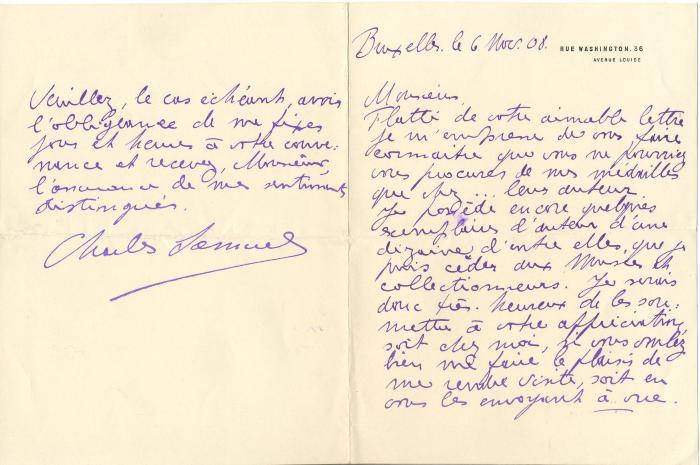 Bruxelles. le 6 Nov. 08.
RUE WASHINGTON. 36
AVENUE LOUISE
Monsieur,
Flatté de votre aimable lettre
je m'empresse de vous faire
connaitre que vous ne pourriez
vous procurer de mes médailles
que chez ... leur auteur.
Je possède encore quelques
exemplaires d'auteur d'une
dizaine d'entre elles, que je
puis céder aux Musées et
collectionneurs. Je serais
donc très heureux de les sou-
mettre à votre appréciation,
soit chez moi, si vous voulez
bien me faire le plaisir de
me rendre visite, soit en
vous les envoyant à vue.
Veuillez, le cas échéant, avoir
l'obligeance de me fixer
jour et heure à votre conve-
nance et recevez, Monsieur,
l'assurance de mes sentiments
distingués.
Charles Samuel